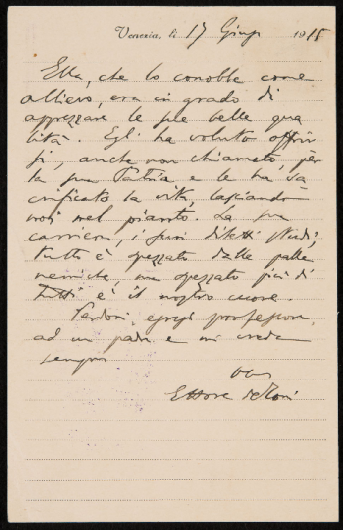 Venezia, li 17 Giugo 1915
Ella, che lo conobbe come
allievo, era in grado di
apprezzare le sue belle qua
lità. Egli ha voluto offrir
si, anche non chiamato, per
la sua Patria e le ha sa
crificato la vita, lasciando
noi nel pianto. La sua
carriera, i suoi diletti studi,
tutto è spezzato dalle palle
nemiche, ma spezzato più di
tutti è il nostro cuore.
Perdoni, egregio professore,
ad un padre e mi creda
sempre
Ettore De Toni